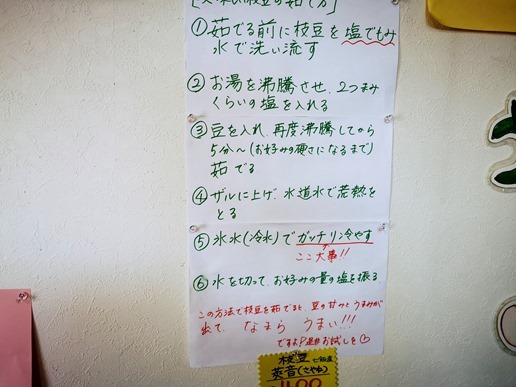 枝豆の茹で方]
①茹でる前に枝豆を塩でもみ
水で洗い流す
②お湯を沸騰させ、2つまみ
くらいの塩を入れる
③豆を入れ、再度沸騰してから
5分〜(お好みの硬さになるまで)
茹でる
④ザルに上げ、水道水で荒熱を
とる
⑤氷水(冷水)でガッチリ冷やす
ここ大事!!
⑥水を切って、お好みの量の塩を振る
この方法で枝豆を茹でると、豆の甘みとうまみが
出て、なまら うまい!!!
お試しを
枝豆
(さやね)